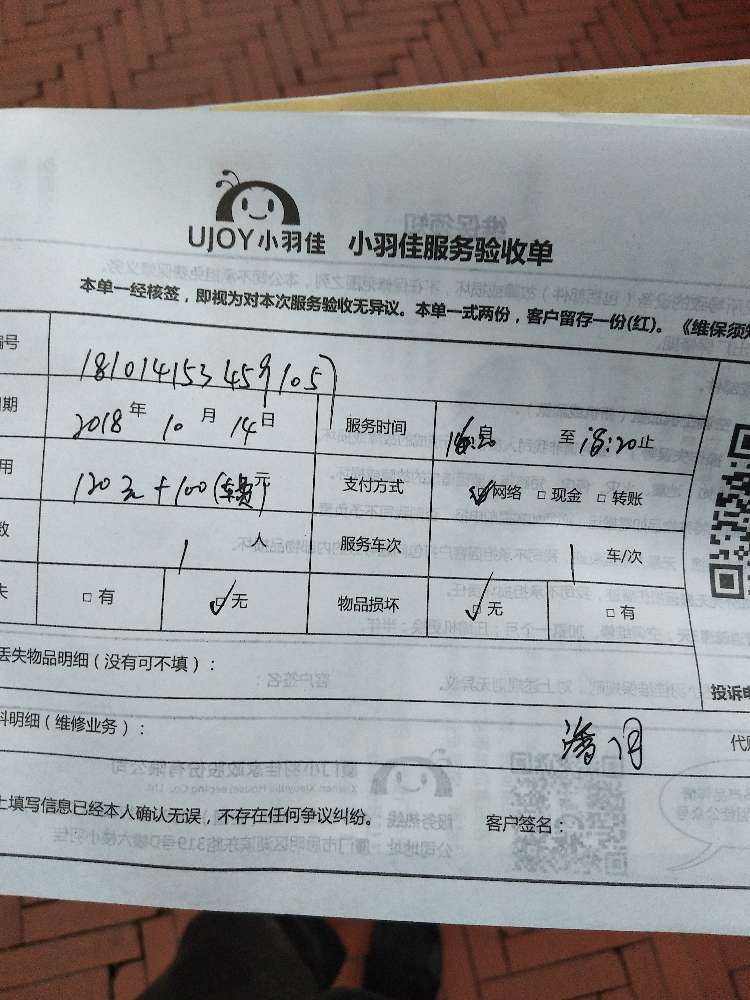 UJOY小羽佳 小羽佳服务验收单
本单一经核签，即视为对本次服务验收无异议。本单一式两份，客户留存一份(红)。《维保须知
编号 181014153459105
日期 2018 年 10 月 14 日 服务时间 至 18:20止
用 120元+100(车费)元 支付方式 ☑网络 □现金 □转账
数 1 人 服务车次 1 车/次
失 □有 ☑无 物品损坏 ☑无 □有
丢失物品明细（没有可不填）：
投诉电
料明细（维修业务）：
上填写信息已经本人确认无误，不存在任何争议纠纷。 客户签名：